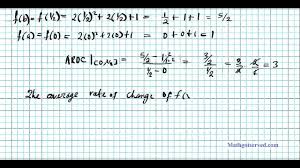 f(b) = f(1/2) = 2(1/2)² + 2(1/2) + 1 = 1/2 + 1 + 1 = 5/2
f(a) = f(0) = 2(0)² + 2(0) + 1 = 0 + 0 + 1 =
AROC [0,1/2] = = 3/2 / 1/2 = = 3
1/2 - 0
The average rate of change of f(
Mathgotserved.com